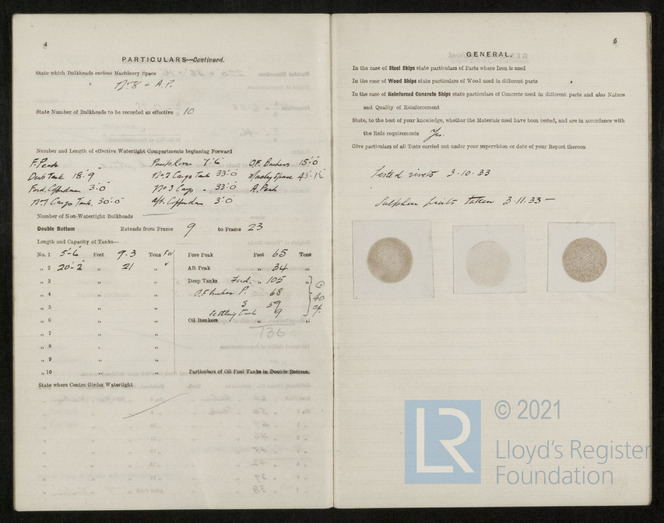 4
PARTICULARS—Continued.
State which Bulkheads enclose Machinery Space
No 8 + A.P.
State Number of Bulkheads to be recorded as effective 10
Number and Length of effective Watertight Compartments beginning Forward
F. Peak Pump Room 7'6" O.F. Bunkers 15'0
Deep Tank 18'9 No 2 Cargo Tank 33'0 Machy Space
Ford. Cofferdam 3'0 No 3 Cargo " 33'0 A. Peak
No 1 Cargo Tank. 30'0" Aft Cofferdam 3'0
Number of Non-Watertight Bulkheads
Double Bottom Extends from Frame 9 to Frame 23
Length and Capacity of Tanks—
No. 1 5'-6" Feet 9.3 Tons Fore Peak Feet 65 Tons
" 2 20'-2" " 21 " Aft Peak " 34 "
" 3 " " Deep Tanks Ford. " 105 "
" 4 " " O.F. Bunkers P. " 68
" 5 " " S " 59
" 6 " " Settling tank 9
Oil Bunkers
" 7 " "
" 8 " "
" 9 " "
" 10 " " Particulars of Oil Fuel Tanks in Double Bottom
State where Centre Girder Watertight
5
GENERAL.
In the case of Steel Ships state particulars of Parts where Iron is used
In the case of Wood Ships state particulars of Wood used in different parts
In the case of Reinforced Concrete Ships state particulars of Concrete used in different parts and also Nature
and Quality of Reinforcement
State, to the best of your knowledge, whether the Materials used have been tested, and are in accordance with
the Rule requirements Yes.
Give particulars of all Tests carried out under your supervision or date of your Report thereon
Tested rivets 3-10-33
Sulphur prints taken 3-11-33 —
LR
© 2021
Lloyd's Register
Foundation